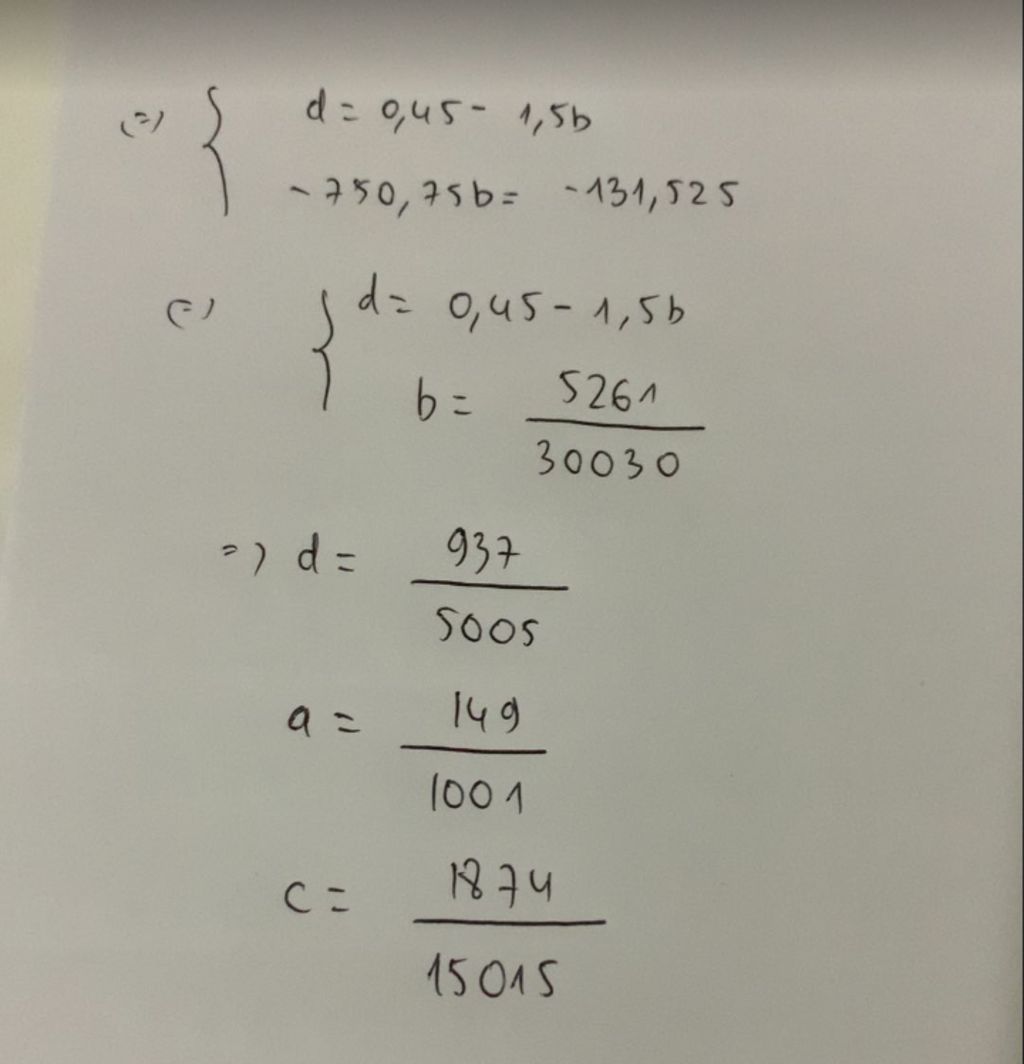 (=) { d = 0,45 - 1,5b
- 750,75b = -131,525
(=) { d = 0,45 - 1,5b
b = 5261
30030
=) d = 937
5005
a = 149
1001
c = 1874
15015